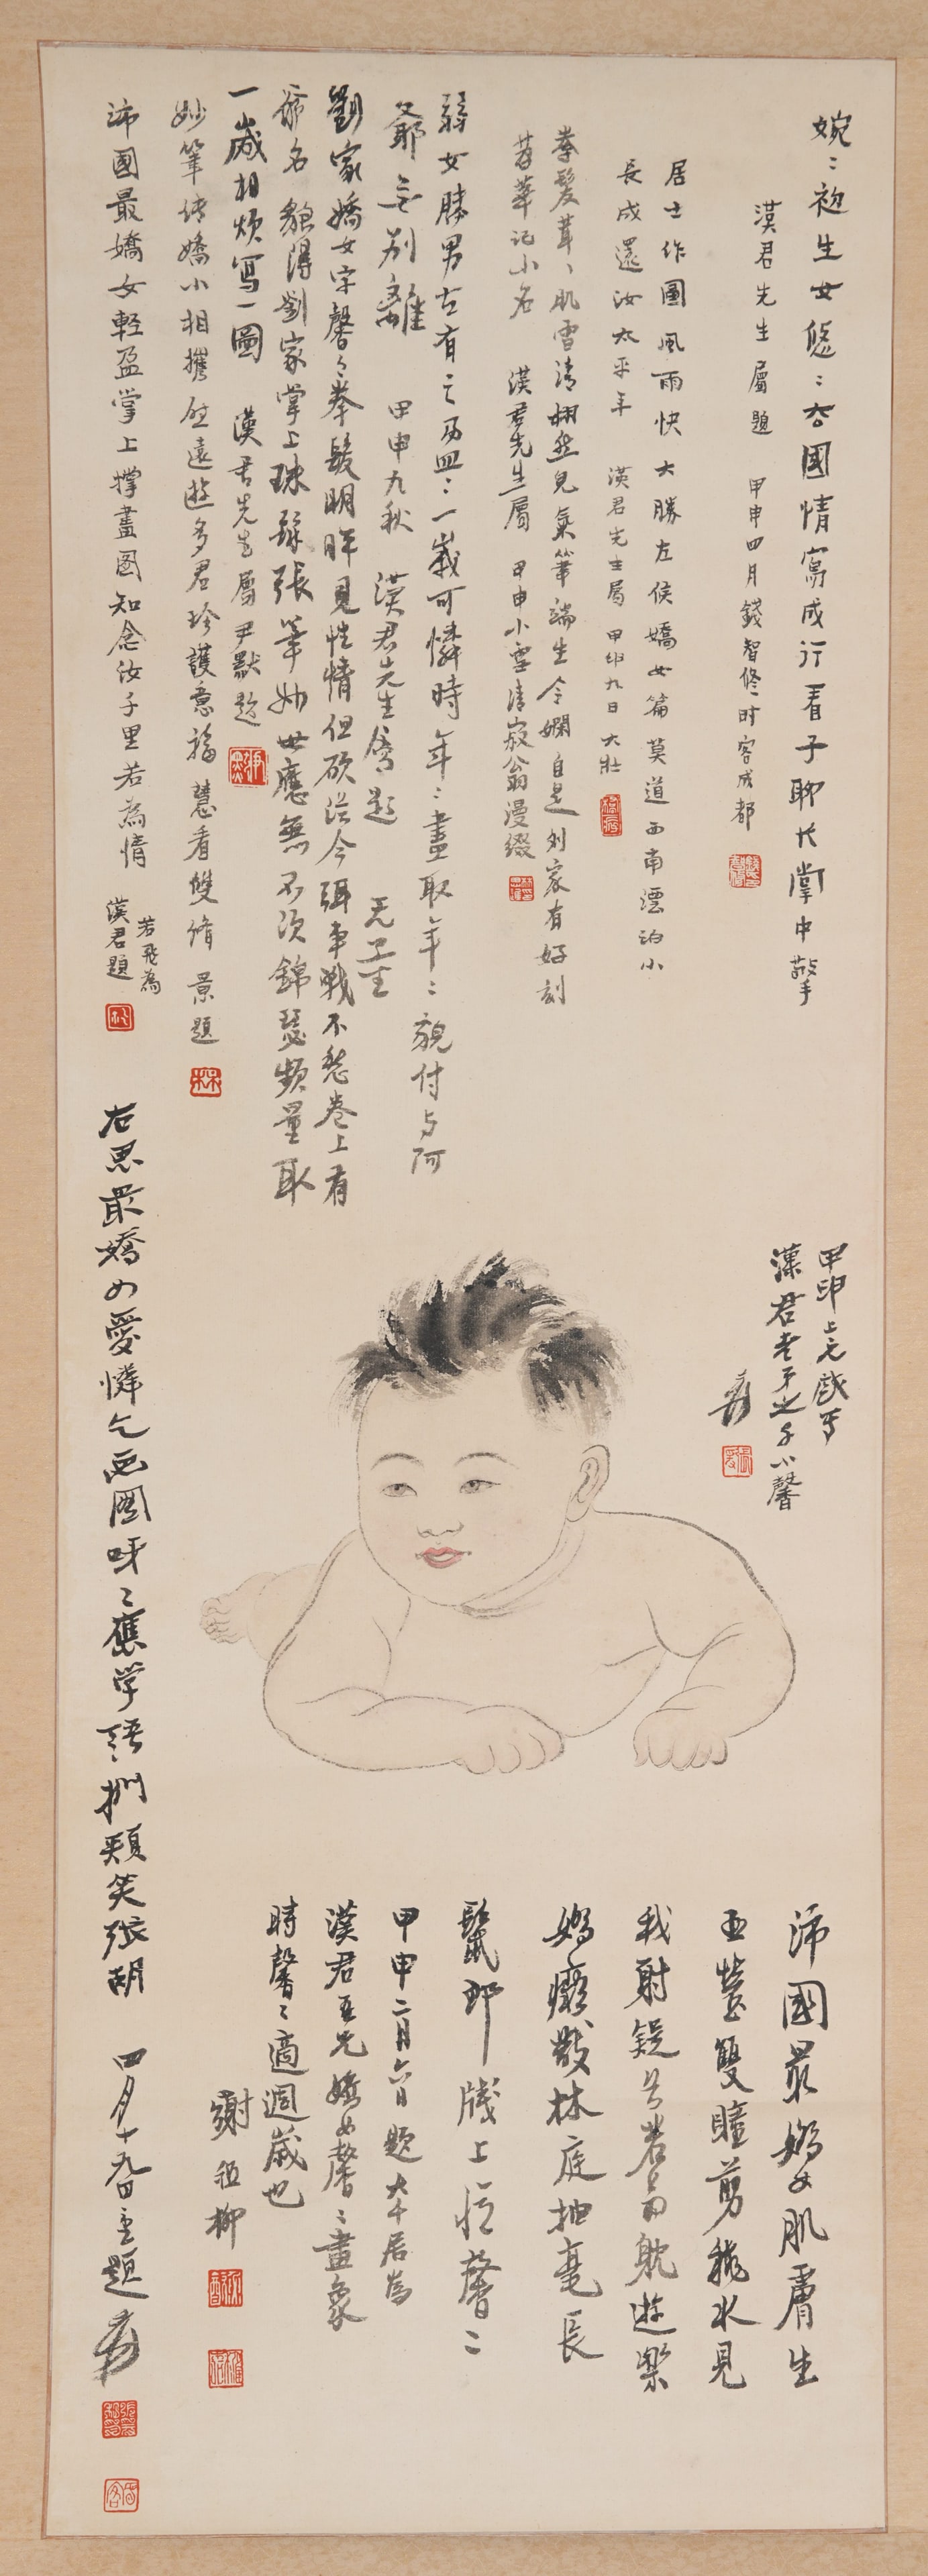 婉〻初生女悠〻去國情寫成行看子聊代掌中擎
漢君先生屬題
甲申四月錢智修時客成都
居士作圖風雨快大勝左侯嬌女篇莫道西南漂泊小
長成還汝太平年
漢君先生屬甲申九日大壯
拳髮茸〻肌雪清栩然兒氣筆端生令嫻自是劉家有好刻
苕華記小名
漢君先生屬甲申小雪清寂翁漫綴
弱女勝男古有之〻一歲可憐時年〻畫取年〻貌付与阿
爺無別離
甲申九秋漢君先生屬題
劉家嬌女字馨〻拳髮明眸見性情但願從今弭事戰不愁卷上有
爺名貌得劉家掌上珠張筆妙世應無不須錦瑟頻量取
一歲相煩寫一圖
漢君先生屬尹默題
妙筆傳嬌小相攜遠遊多君珍護意福慧看雙脩
景題
沛國最嬌女輕盈掌上擎畫圖知念汝千里若為情
若飛為
漢君題
甲申上元戲寫
漢君老兄之千小馨
爰
沛國最嬌女肌膚生
玉瑩雙瞳剪秋水見
我射錠号若翁躭遊樂
嬌癡散林庭抽毫長
髯邛牋上恒馨〻
甲申二月六日題大千居為
漢君吾兄嬌女馨〻畫象
時馨〻適週歲也
謝稚柳
左思最嬌女愛憐乞畫圖呀〻應学語捫頰笑張胡
四月十九日重題爰